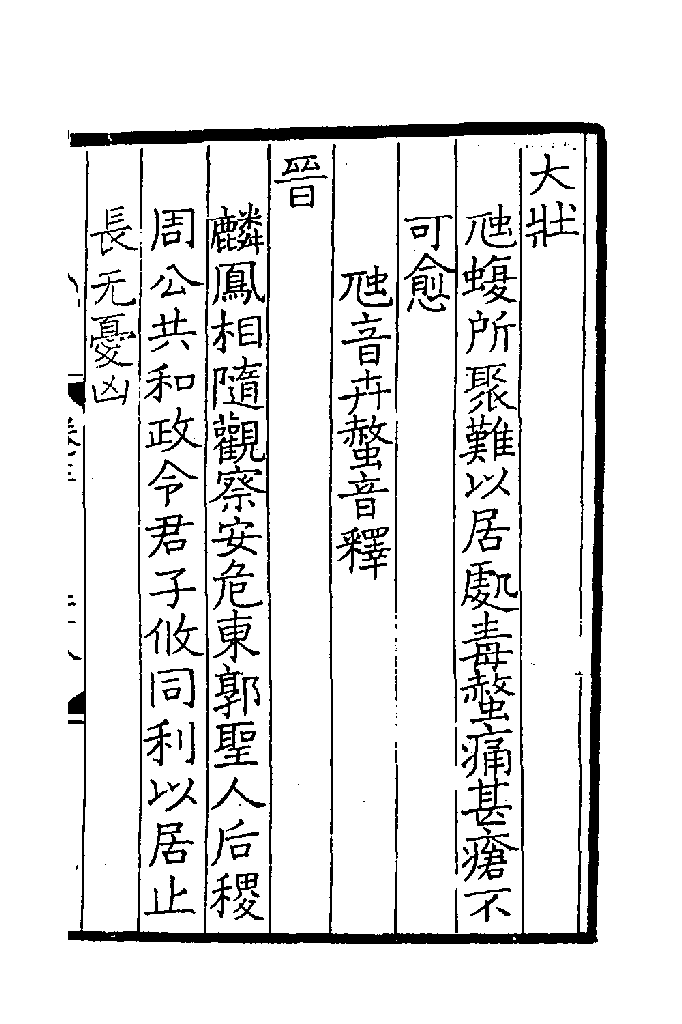 大壯
虺蝮所聚難以居處毒螫痛甚瘡不
可愈
虺音卉螫音釋
晉
麟鳳相隨觀察安危東郭聖人后稷
周公共和政令君子攸同利以居止
長无憂凶